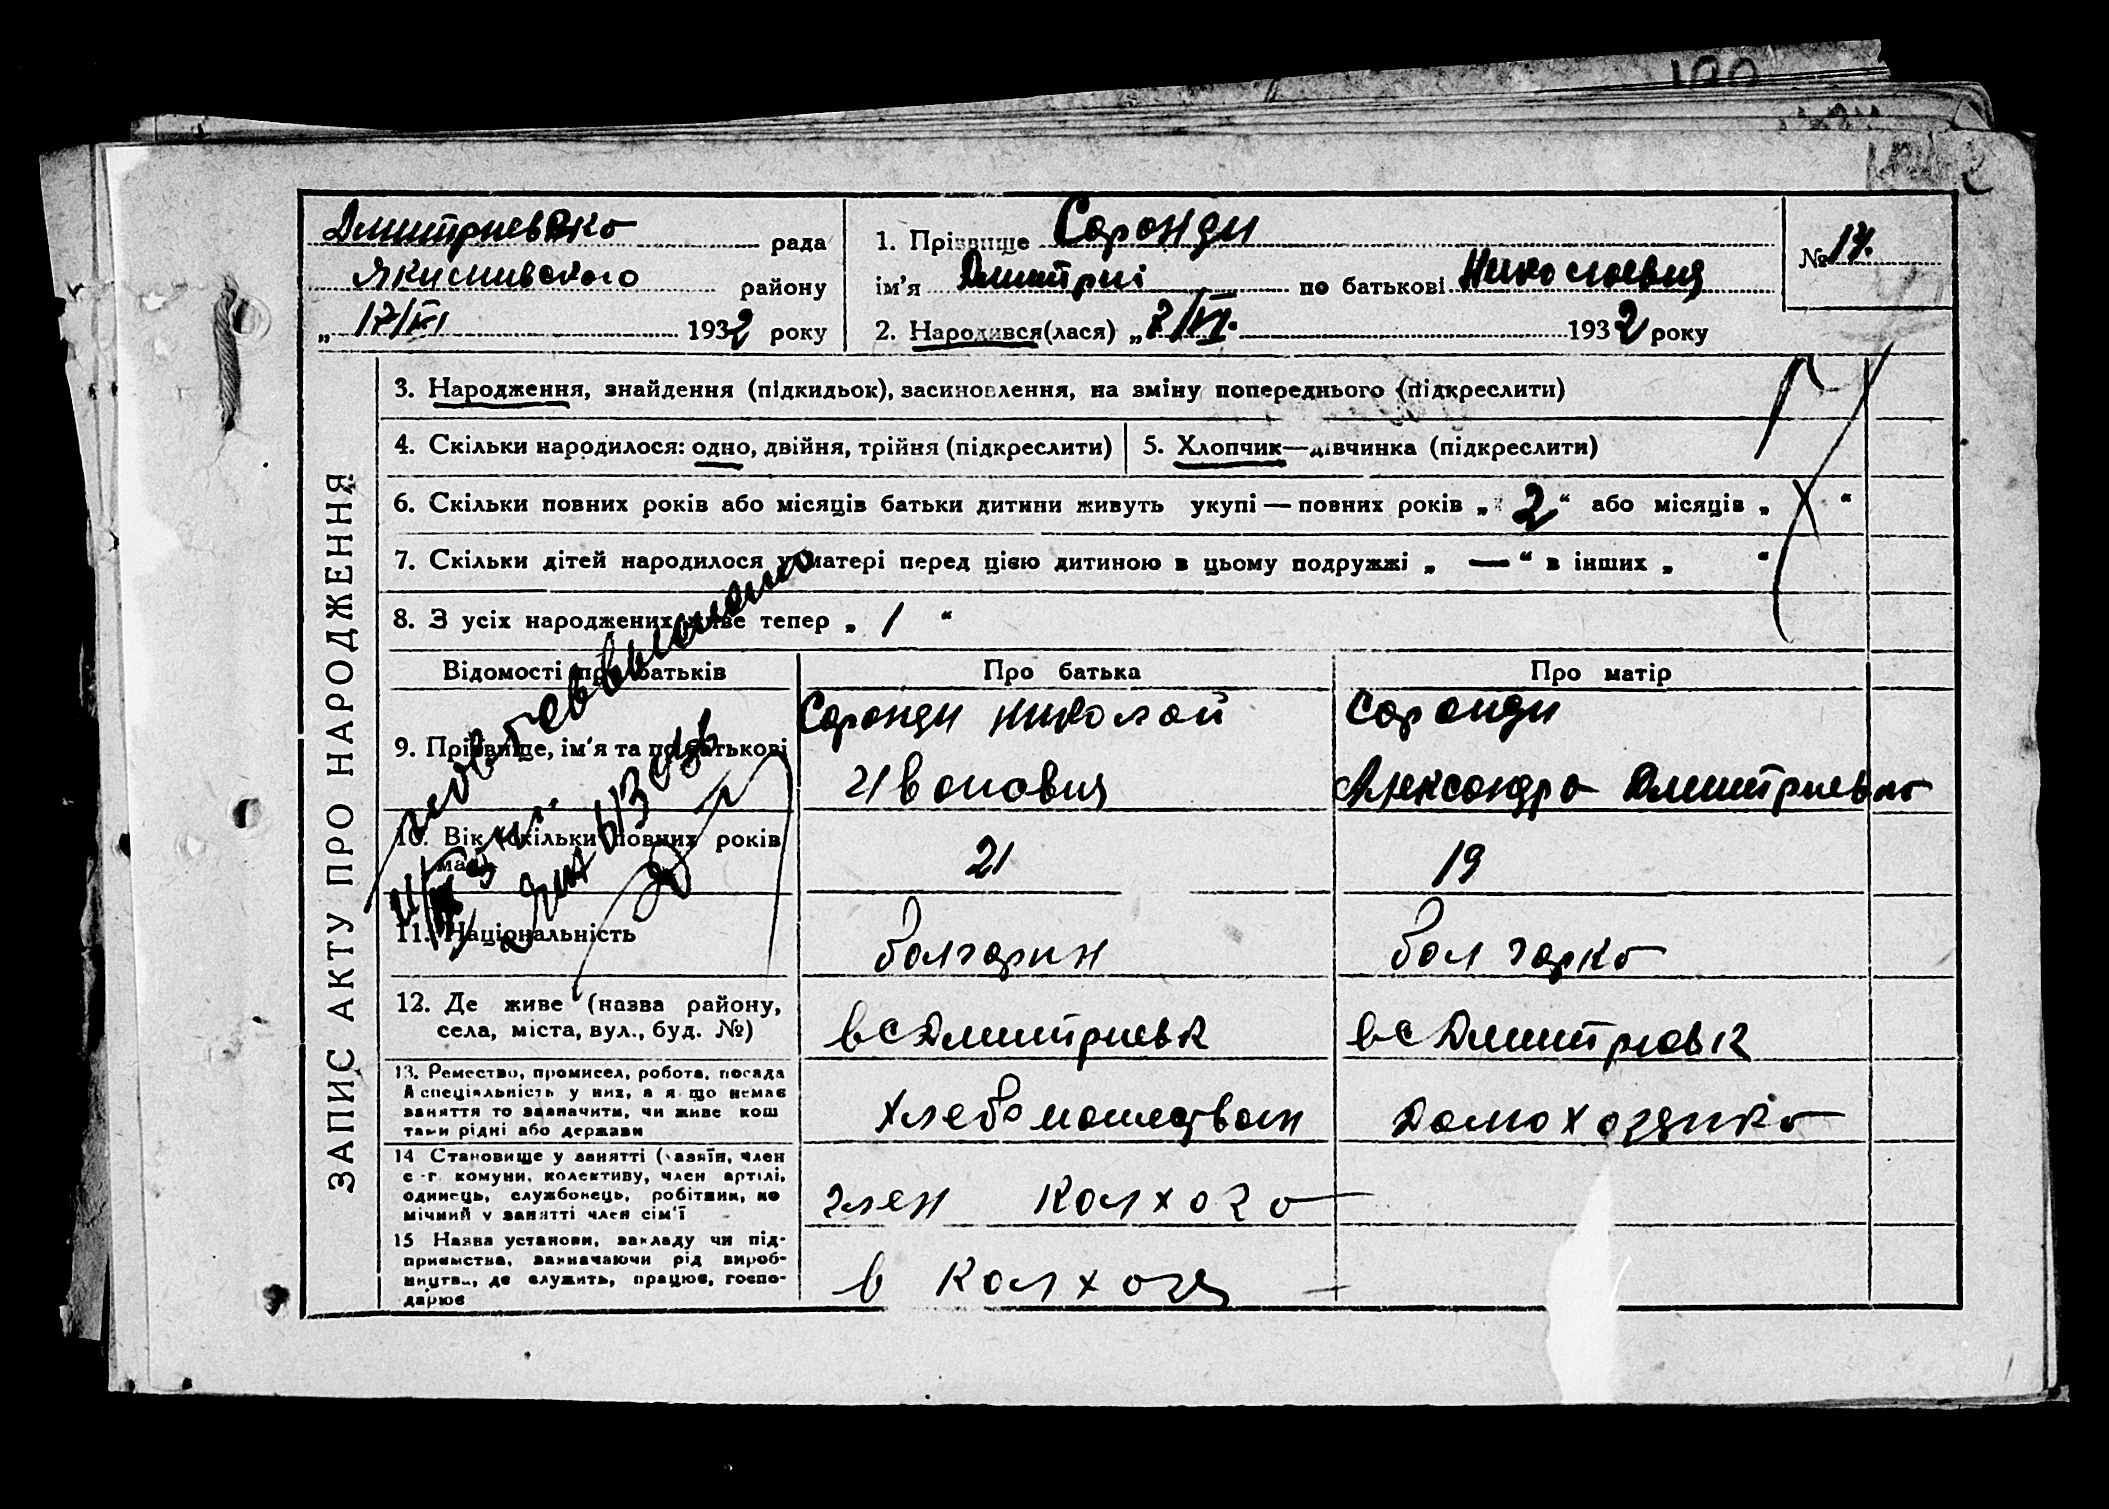 ЗАПИС АКТУ ПРО НАРОДЖЕННЯ
Дмитриевско рада
Якимивского району
„ 17/VI 1932 року
1. Прізвище Саронди
ім'я Дмитриі по батькові Николаевич
2. Народився(лася) „ 7/VI. 1932 року
№ 17.
3. Народження, знайдення (підкидьок), засиновлення, на зміну попереднього (підкреслити)
4. Скільки народилося: одно, двійня, трійня (підкреслити)
5. Хлопчик—дівчинка (підкреслити)
6. Скільки повних років або місяців батьки дитини живуть укупі — повних років „ 2 “ або місяців „ “
7. Скільки дітей народилося у матері перед цією дитиною в цьому подружжі „ — “ в інших „ “
8. З усіх народжених живе тепер „ 1 “
Відомості про батьків
Про батька
Про матір
9. Прізвище, ім'я та по батькові
Саронди Николай
Иванович
Саронди
Александра Дмитриевна
10. Вік (скільки повних років має)
21
19
11. Національність
болгарин
болгарка
12. Де живе (назва району,
села, міста, вул., буд. №)
в с Дмитриевк
в с Дмитриевк
13. Ремество, промисел, робота, посада
й спеціяльність у них, а я що немає
заняття то зазначити, чи живе кош
тами рідні або держави
хлебопашеством
Домохозяйка
14 Становище у занятті (хазяїн, член
с-г. комуни, колективу, член артілі,
одинець, службовець, робітник, по
мічний у занятті член сім'ї
член колхоза
15 Назва установи, закладу чи під-
приємства, зазначаючи рід вироб-
ництва, де служить, працює, госпо-
дарює
в колхозе —